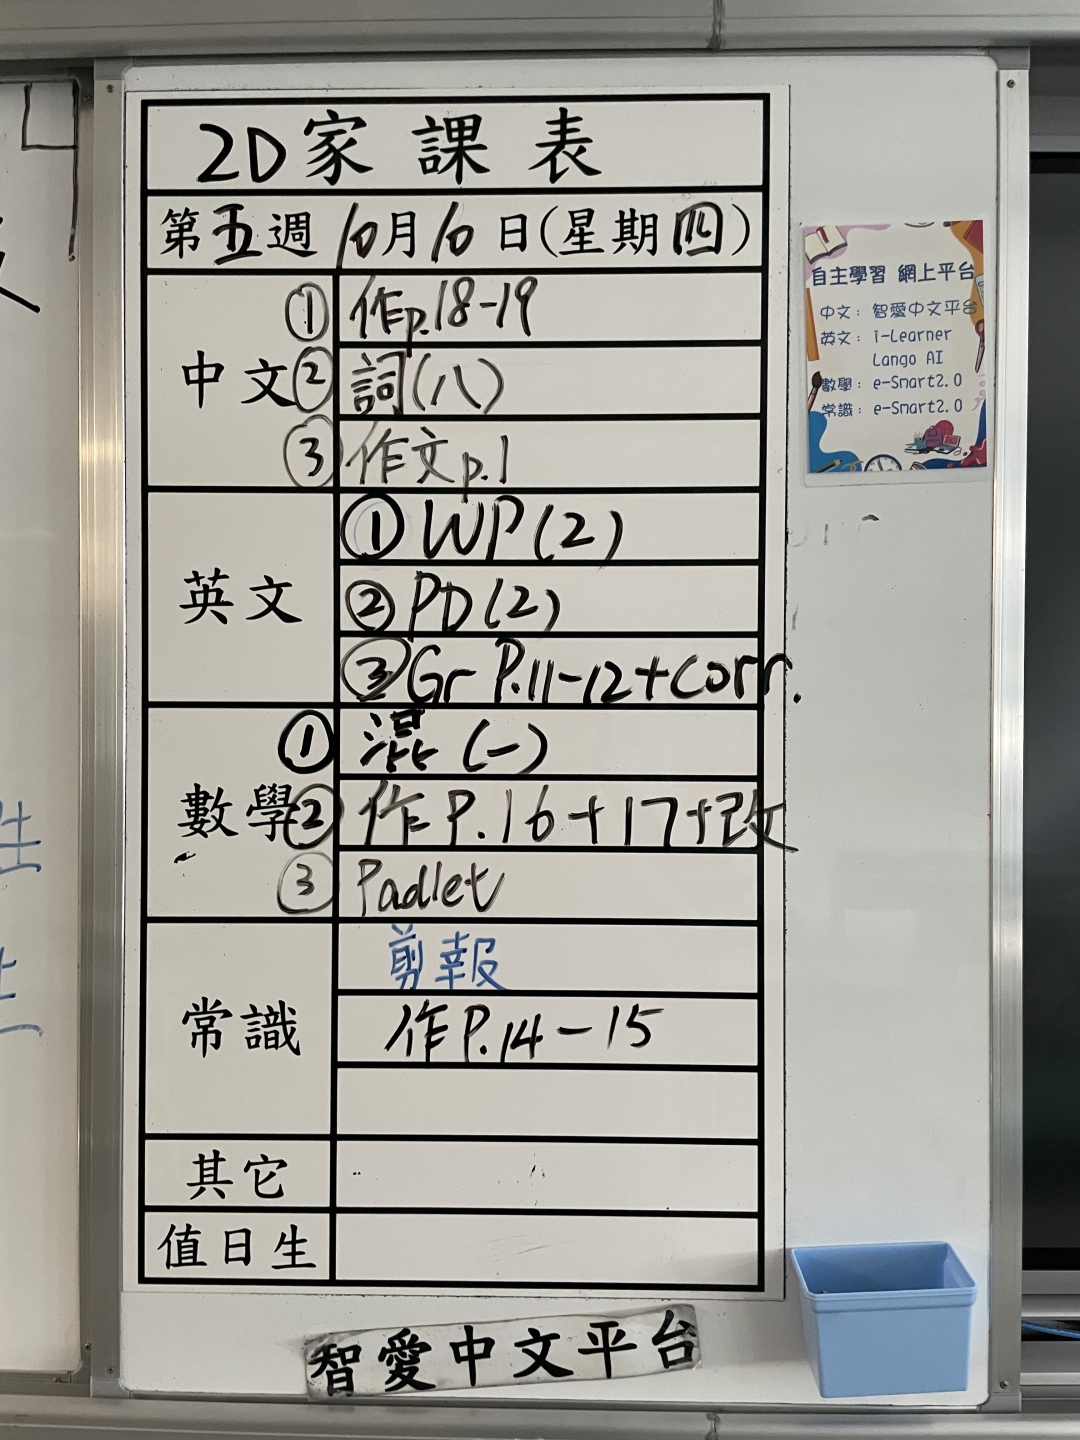 2D家課表
第五週10月10日(星期四)
中文
①作p.18-19
②詞(八)
③作文p.1
英文
①WP(2)
②PD(2)
③Gr P.11-12+corr.
數學
①混(一)
②作P.16+17+改
③Padlet
常識
剪報
作P.14-15
其它
值日生
智愛中文平台
自主學習 網上平台
中文：智愛中文平台
英文：i-Learner
Lango AI
數學：e-Smart2.0
常識：e-Smart2.0